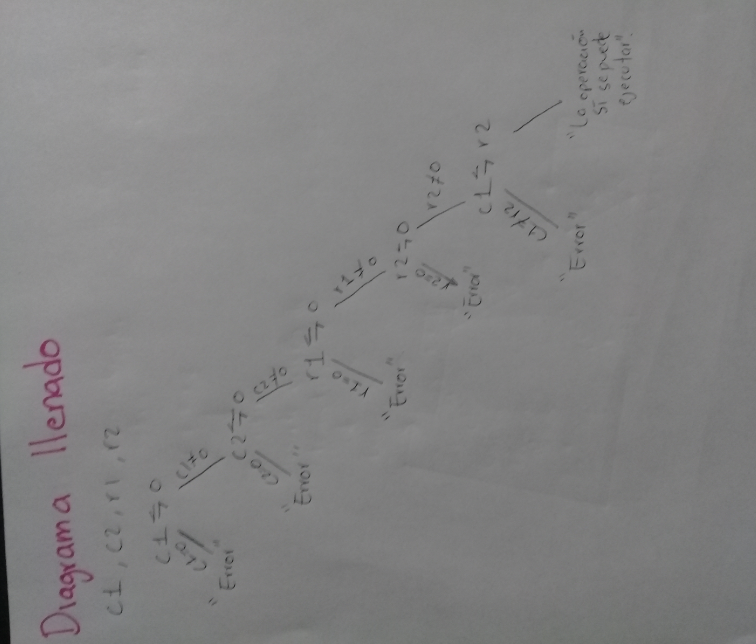 Diagrama llenado
c1, c2, r1, r2
c1 ⇆ 0
c1≠0
"Error"
c2 ⇆ 0
c2≠0
"Error"
r1 ⇆ 0
r1≠0
r1=0
"Error"
r2 ⇆ 0
r2≠0
r2=0
"Error"
c1 ⇆ r2
"Error"
"La operación
si se puede
ejecutar".